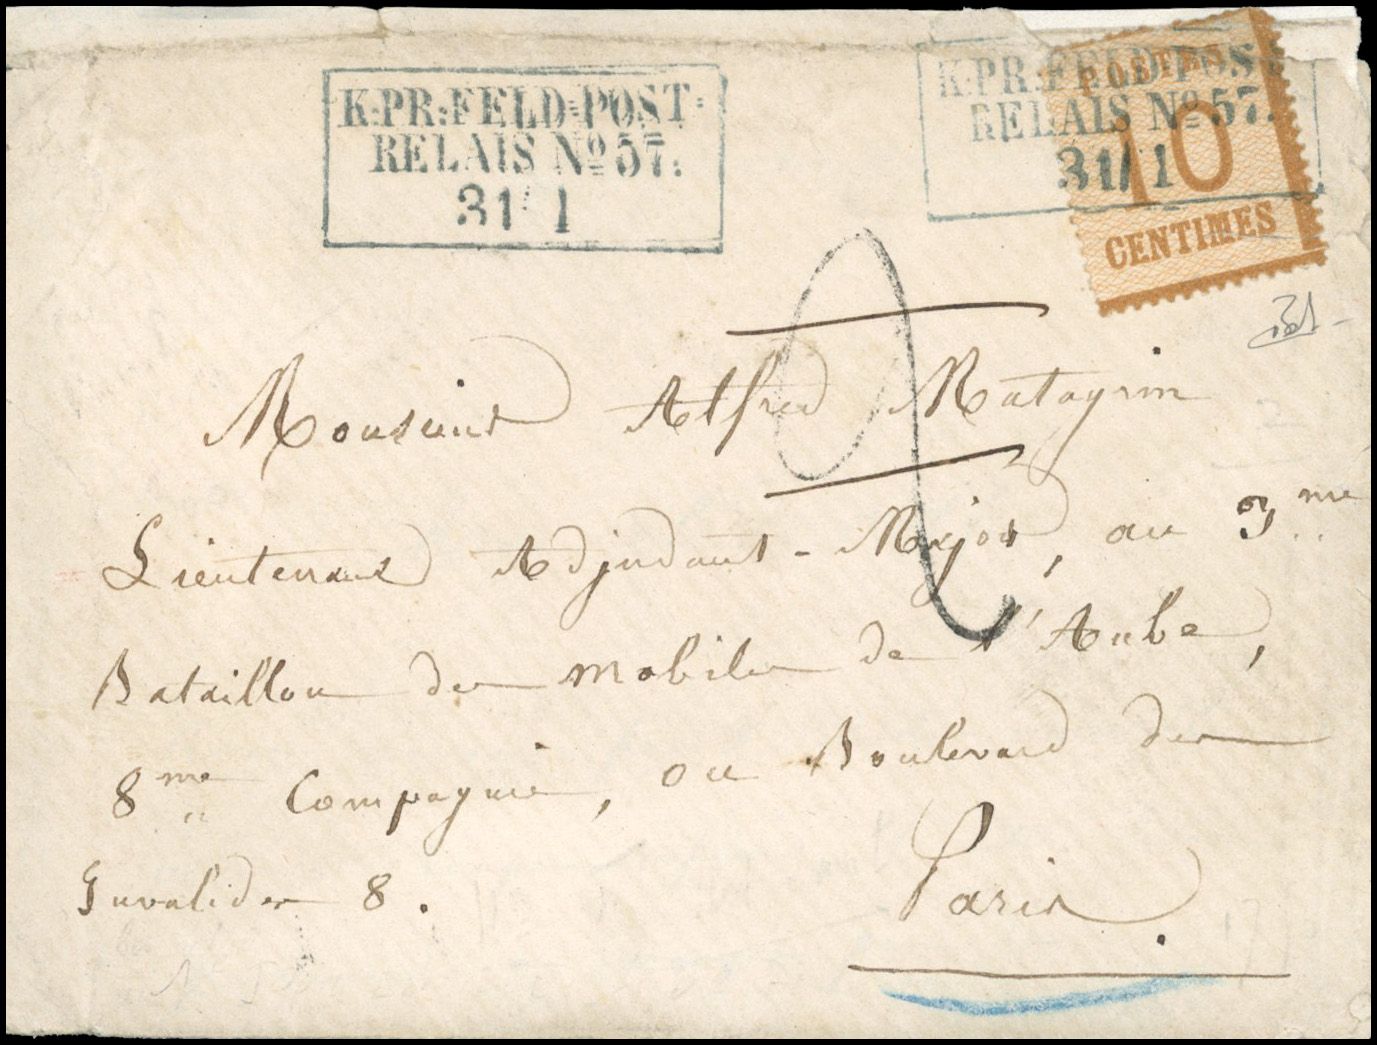 K:PR:FELD=POST-
RELAIS No 57.
31 1
K:PR:FELD=POST-
RELAIS No 57.
31/1
POSTES
10
CENTIMES
2
Monsieur Alfred Matagrin
Lieutenant Adjudant-Major, au 3me
Bataillon des mobiles de l'Aube,
8me Compagnie, ou Boulevard des
Invalides 8.
Paris